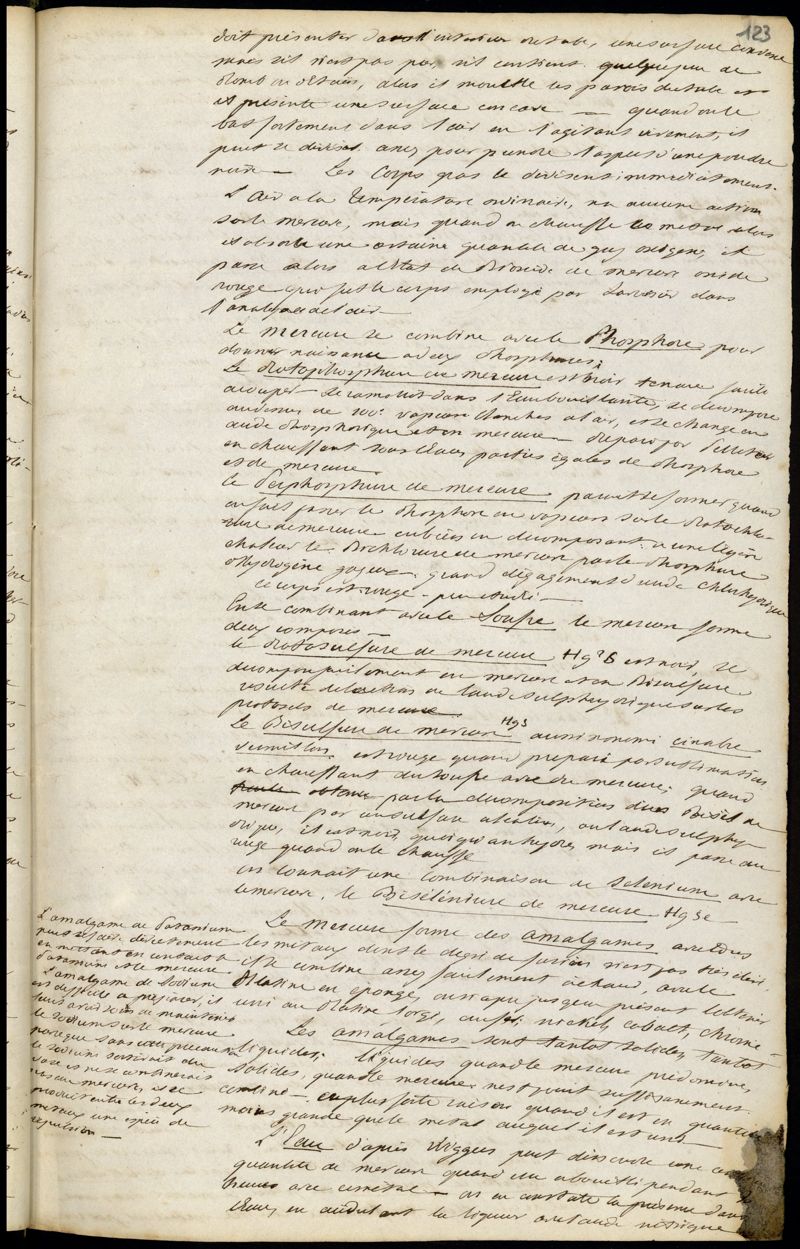 123
doit présenter dans l'intérieur du tube, une surface convexe
mais s'il n'est pas pur, s'il contient quelque peu de
plomb ou d'étain, alors il mouille les parois du tube et
et présente une surface concave — quand on le
bat fortement dans l'air en l'agitant vivement, il
peut se diviser assez pour prendre l'aspect d'une poudre
noire — Les Corps gras le divisent immédiatement.
L'air à la température ordinaire, n'a aucune action
sur le mercure, mais quand on chauffe ce métal alors
il absorbe une certaine quantité de gaz oxigène, et
passe alors à l'état de Bioxide de mercure oxide
rouge qui fut le corps employé par Lavoisier dans
l'analyse de l'air —
Le mercure se combine avec le Phosphore pour
donner naissance à deux phosphures.
Le Protophosphure de mercure est noir tenace facile
à couper — se ramollit dans l'Eau bouillante, se décompose
au dessus de 100° vapeurs blanches à l'air, et se change en
acide phosphorique et en mercure —
en chauffant sous l'eau parties égales de Phosphore
et de mercure
Le Perphosphure de mercure parait se former quand
on fait passer le Phosphore en vapeurs sur le Protochlo-
rure de mercure ou bien en décomposant à une légère
chaleur le Bichlorure de mercure par le Phosphure
d'hydrogène gazeux — grand dégagement d'acide chlorhydrique
ce corps est rouge — peu étudié —
En se combinant avec le Soufre le mercure forme
deux composés —
le Protosulfure de mercure Hg²S est noir, se
décompose facilement en mercure et en Bisulfure
résulte de l'action de l'acide sulfhydrique sur les
protosels de mercure
Le Bisulfure de mercure HgS aussi nommé cinabre
vermillon est rouge quand préparé par sublimation
en chauffant du soufre avec du mercure; quand
par la décomposition d'un Bisel de
mercure par un sulfure alcalin, ou l'acide sulphy-
drique, il est noir, quoiqu'anhydre, mais il passe au
rouge quand on le chauffe
on connait une combinaison de Selenium avec
le mercure, le Biséléniure de mercure HgSe
Le mercure forme des amalgames avec tous
les métaux dont le degré de fusion n'est pas très élevé.
il se combine assez facilement à chaud, avec le
Platine en éponge, on n'a pu jusqu'à présent l'obtenir
uni au Platine forgé, au fer, nickel, cobalt, chrome —
Les amalgames sont tantôt solides, tantôt
liquides; liquides quand le mercure prédomine,
solides, quand le mercure n'est point suffisamment
combiné — à plus forte raison quand il est en quantité
moins grande que le métal auquel il est uni —
L'Eau d'après Wiggers peut dissoudre une certaine
quantité de mercure quand on a bouilli pendant
heures avec ce métal — on en constate la présence dans
l'Eau, en additionnant la liqueur avec l'acide nitrique
L'amalgame de Potassium
peut se faire directement
en mettant en contact le
Potassium et le mercure
L'amalgame de Sodium
est difficile à préparer, il
faut avoir soin de maintenir
le sodium sous le mercure
parce que sans cette précaution
le sodium sortirait du
vase et ne se combinerait
pas au mercure, et se
produit entre les deux
métaux une espèce de
répulsion —